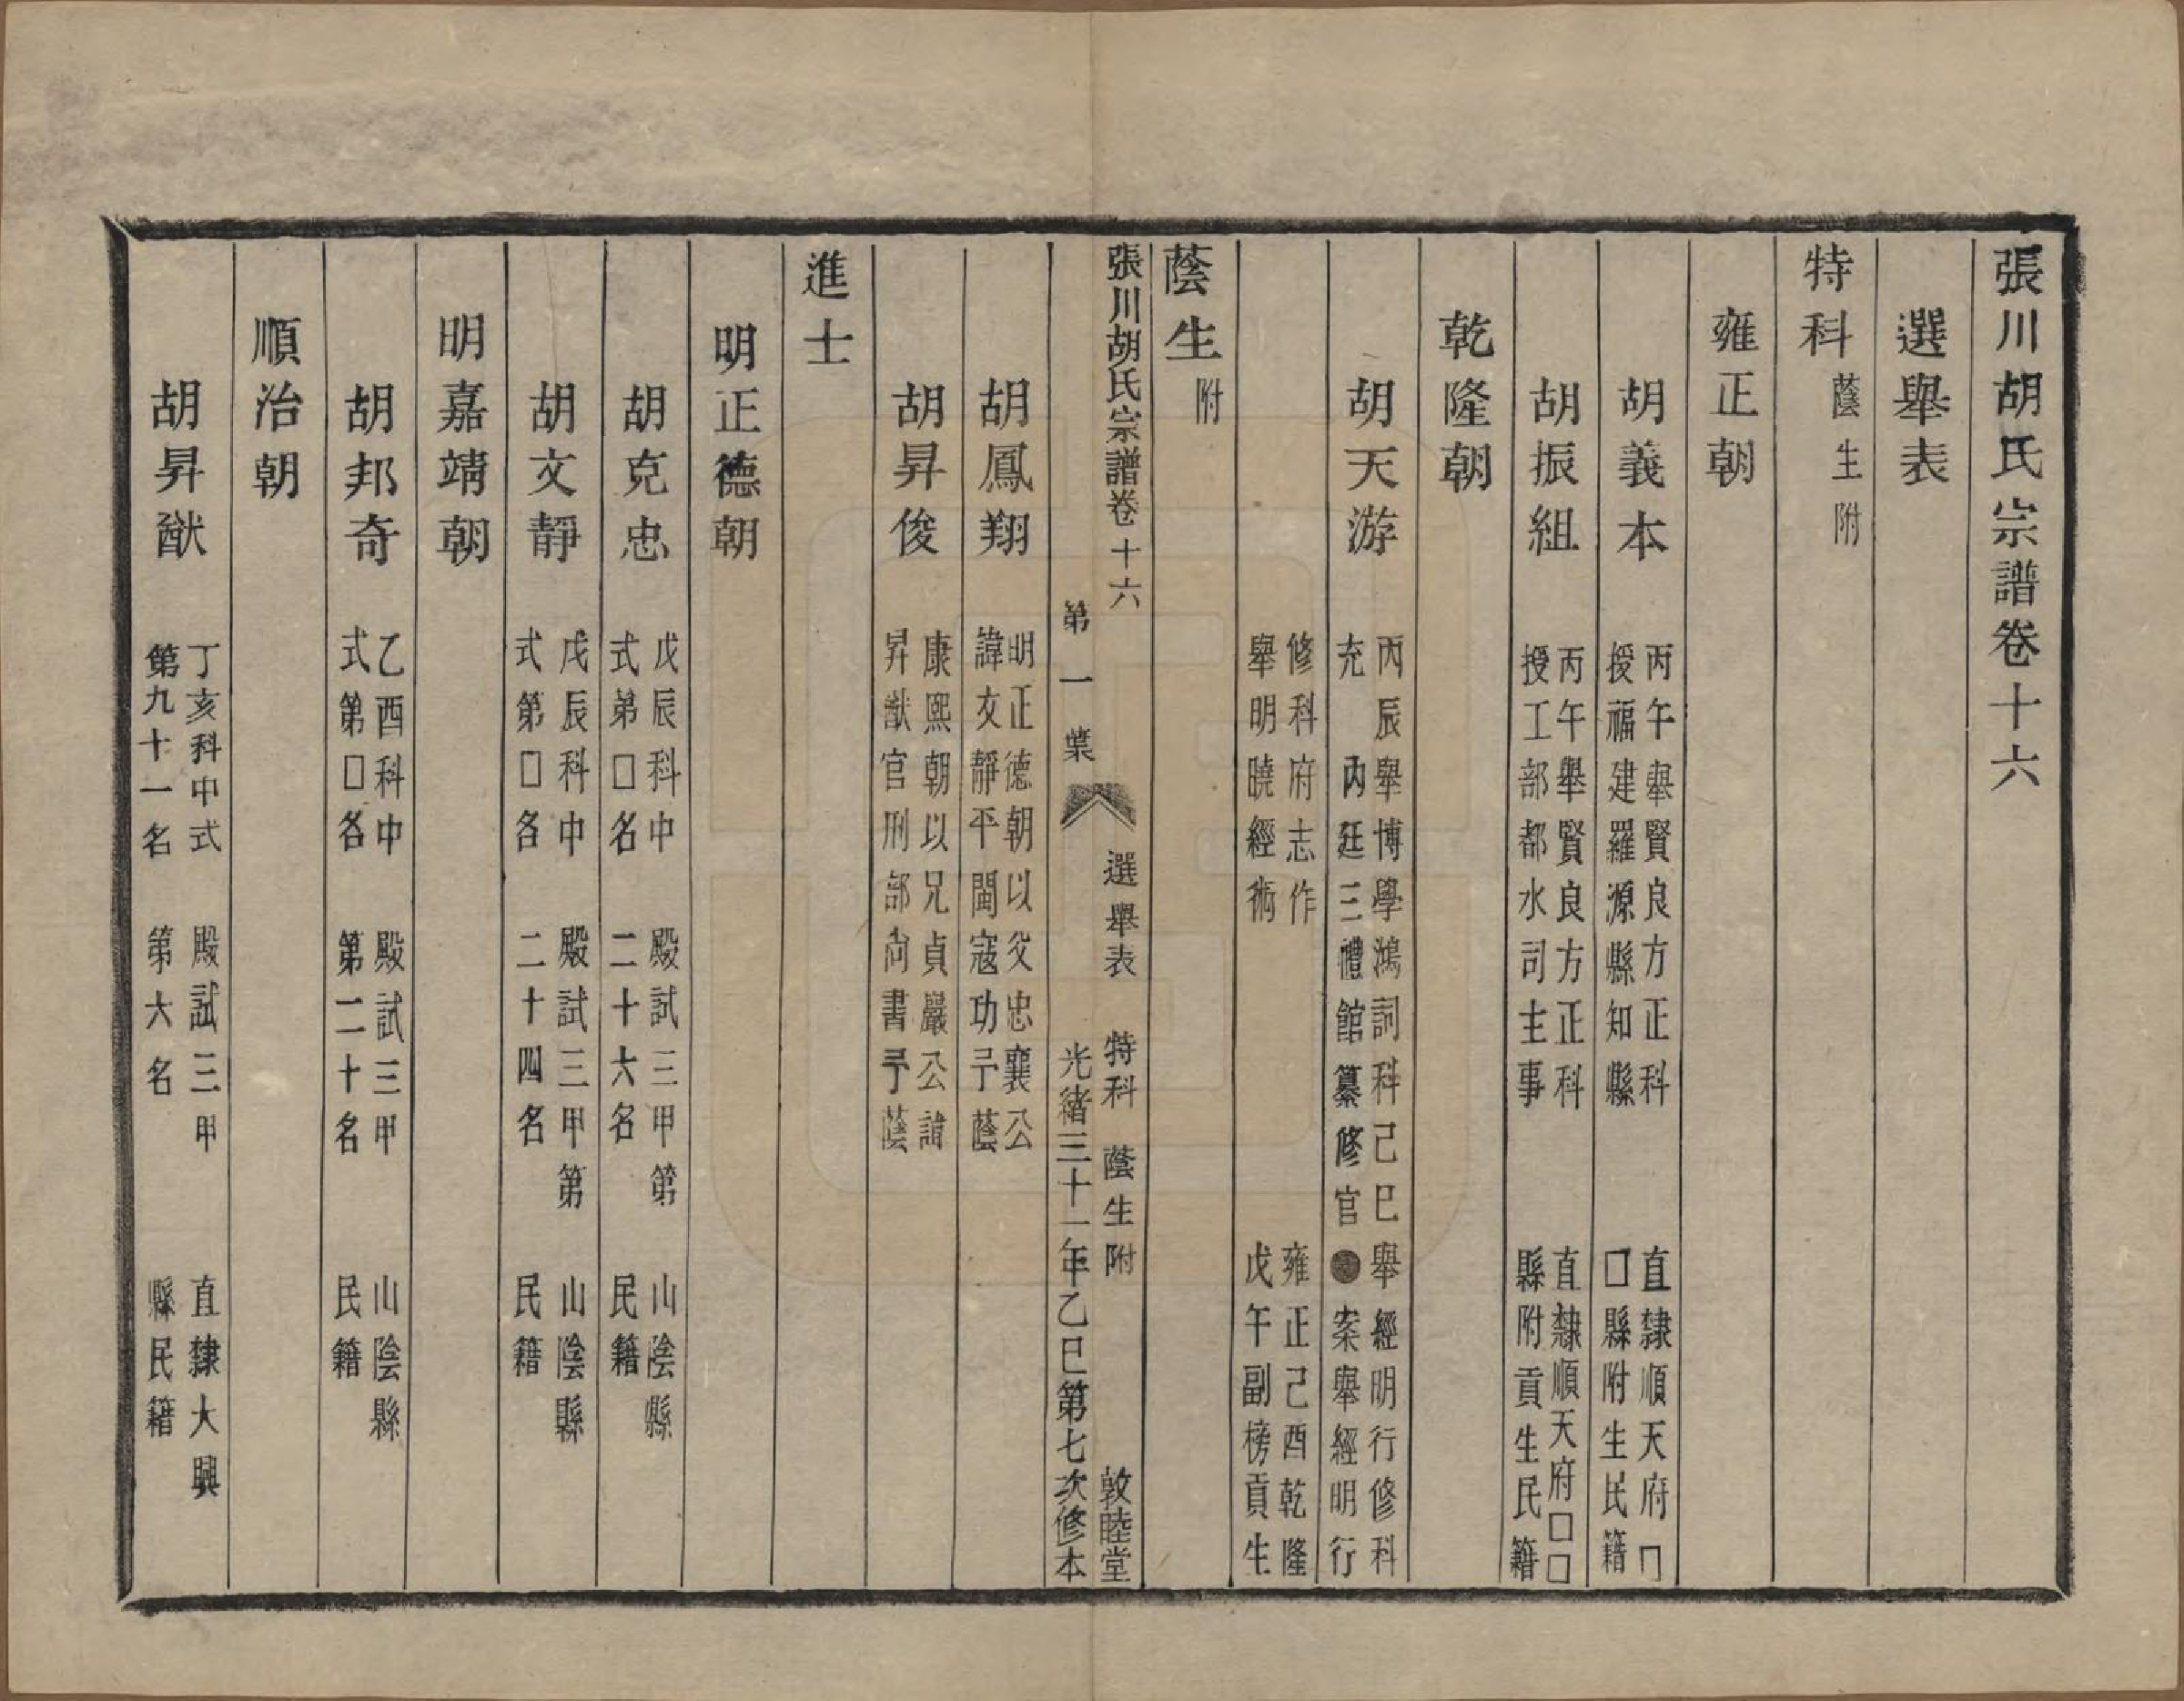 張川胡氏宗譜卷十六
選舉表
特科 蔭生附
雍正朝
胡義本 丙午舉賢良方正科 直隸順天府□
授福建羅源縣知縣 □縣附生民籍
胡振組 丙午舉賢良方正科 直隸順天府□□
授工部都水司主事 縣附貢生民籍
乾隆朝
胡天游 丙辰舉博學鴻詞科己巳舉經明行修科
充 內廷三禮館纂修官●案舉經明行
修科府志作 雍正己酉乾隆
舉明曉經術 戊午副榜貢生
蔭生 附
張川胡氏宗譜卷十六 選舉表 特科 蔭生附 敦睦堂
第一葉 光緒三十一年乙巳第七次修本
胡鳳翔 明正德朝以父忠襄公
諱文靜平閩寇功予蔭
胡昇俊 康熙朝以兄貞嚴公諱
昇猷官刑部尚書予蔭
進士
明正德朝
胡克忠 戊辰科中 殿試三甲第 山陰縣
式第□名 二十六名 民籍
胡文靜 戊辰科中 殿試三甲第 山陰縣
式第□名 二十四名 民籍
明嘉靖朝
胡邦奇 乙酉科中 殿試三甲 山陰縣
式第□名 第二十名 民籍
順治朝
胡昇猷 丁亥科中式 殿試三甲 直隸大興
第九十一名 第六名 縣民籍